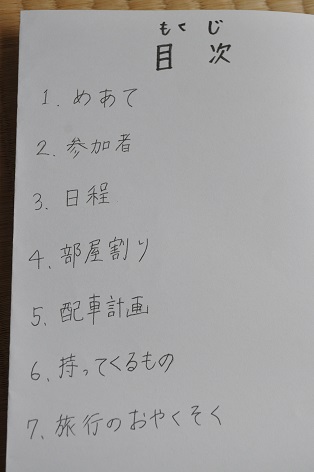 もくじ
目次
1. めあて
2. 参加者
3. 日程
4. 部屋割り
5. 配車計画
6. 持ってくるもの
7. 旅行のおやくそく